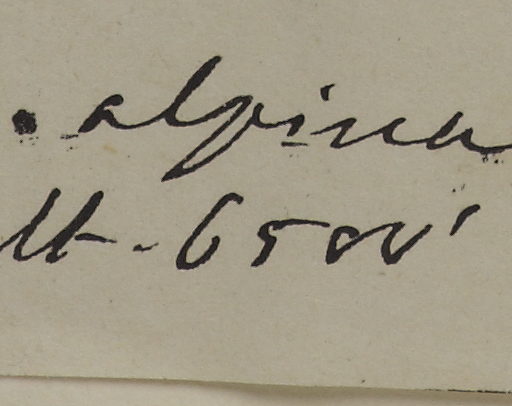 . alpina
lt. 6500'